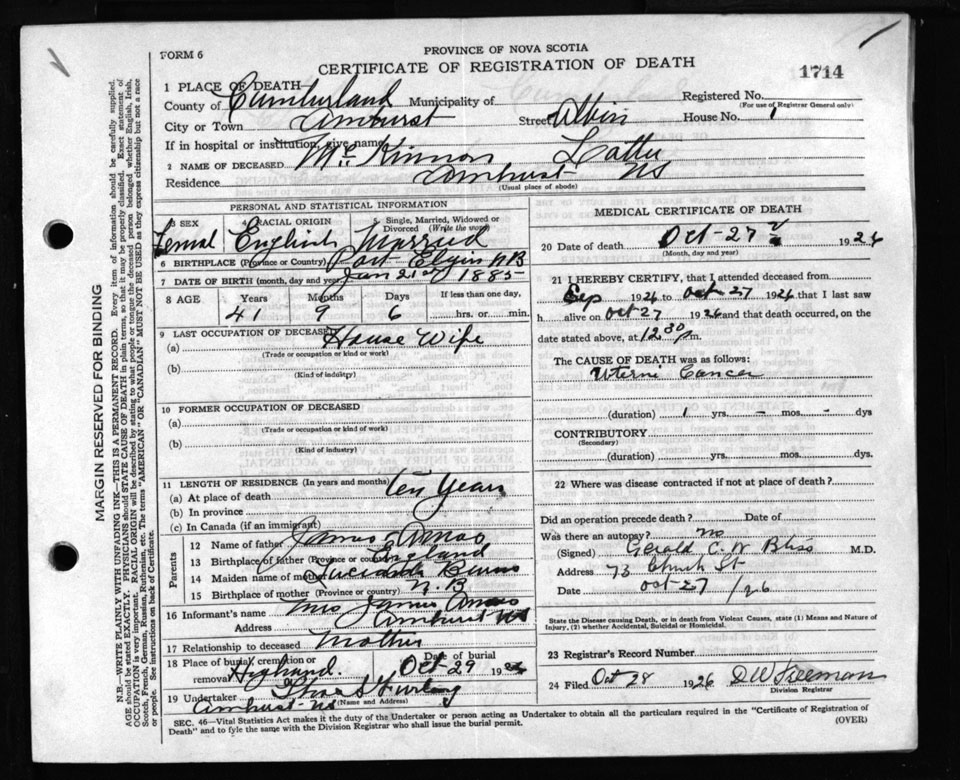 FORM 6
PROVINCE OF NOVA SCOTIA
CERTIFICATE OF REGISTRATION OF DEATH
1714
1 PLACE OF DEATH
County of Cumberland Municipality of
Registered No.
(For use of Registrar General only)
City or Town Amhurst Street Albin House No. 1
If in hospital or institution, give name
2 NAME OF DECEASED McKinnon
Residence Amhurst NS
(Usual place of abode)
PERSONAL AND STATISTICAL INFORMATION
3 SEX 4 RACIAL ORIGIN 5 Single, Married, Widowed or Divorced (Write the word)
Femal English Married
6 BIRTHPLACE (Province or Country) Port Elgin NB
7 DATE OF BIRTH (month, day and year) Jan 21st 1885
8 AGE Years Months Days If less than one day,
41 9 6 hrs. or min.
9 LAST OCCUPATION OF DECEASED
(a) House Wife
(Trade or occupation or kind or work)
(b)
(Kind of industry)
10 FORMER OCCUPATION OF DECEASED
(a)
(Trade or occupation or kind of work)
(b)
(Kind of industry)
11 LENGTH OF RESIDENCE (In years and months)
(a) At place of death ten years
(b) In province
(c) In Canada (if an immigrant)
Parents
12 Name of father James Amos
13 Birthplace of father (Province or country) England
14 Maiden name of mother Burns
15 Birthplace of mother (Province or country) N.B
16 Informant's name Mrs James Amos
Address Amhurst NS
17 Relationship to deceased Mother
18 Place of burial, cremation or removal Highland. Date of burial Oct 29 1926
19 Undertaker Furlong
Amhurst NS (Name and Address)
MEDICAL CERTIFICATE OF DEATH
20 Date of death Oct-27 1926
(Month, day and year)
21 I HEREBY CERTIFY, that I attended deceased from
Sep 1926 to Oct 27 1926 that I last saw
h alive on Oct-27 1926 and that death occurred, on the
date stated above, at 12.30 m.
The CAUSE OF DEATH was as follows:
Uterni Cancer
(duration) 1 yrs. - mos. - dys
CONTRIBUTORY
(Secondary)
(duration) yrs. mos. dys.
22 Where was disease contracted if not at place of death?
Did an operation precede death? Date of
Was there an autopsy? no
(Signed) Gerald C. W Bliss M.D.
Address 73 Church St
Date Oct-27/26
State the Disease causing Death, or in death from Violent Causes, state (1) Means and Nature of
Injury, (2) whether Accidental, Suicidal or Homicidal.
23 Registrar's Record Number
24 Filed Oct 28 1926 D W Freeman
Division Registrar
SEC. 46—Vital Statistics Act makes it the duty of the Undertaker or person acting as Undertaker to obtain all the particulars required in the "Certificate of Registration of
Death" and to fyle the same with the Division Registrar who shall issue the burial permit.
(OVER)
MARGIN RESERVED FOR BINDING
N.B.—WRITE PLAINLY WITH UNFADING INK—THIS IS A PERMANENT RECORD. Every item of information should be carefully supplied.
AGE should be stated EXACTLY. PHYSICIANS should STATE CAUSE OF DEATH in plain terms, so that it may be properly classified. Exact statement of
OCCUPATION is very important. RACIAL ORIGIN will be described by stating to what people or tongue the deceased person belonged whether English, Irish,
Scotch, French, German, Russian, Ruthenian, etc. The terms "AMERICAN" OR "CANADIAN" MUST NOT BE USED as they express citizenship but not a race
or people. See instructions on back of Certificate.